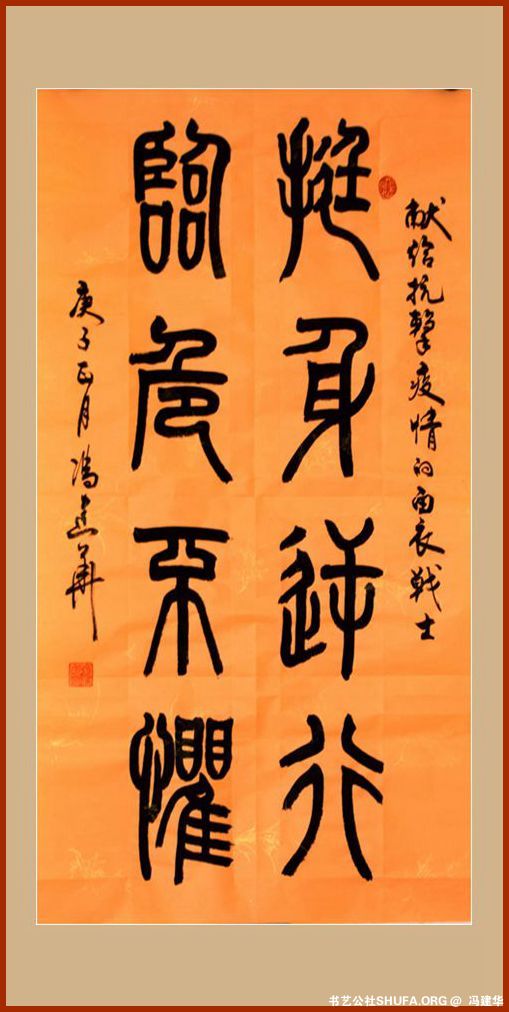 献给抗擊疫情的白衣戰士
挺身逆行
臨危不懼
庚子正月冯建華
书艺公社SHUFA.ORG @ 冯建华